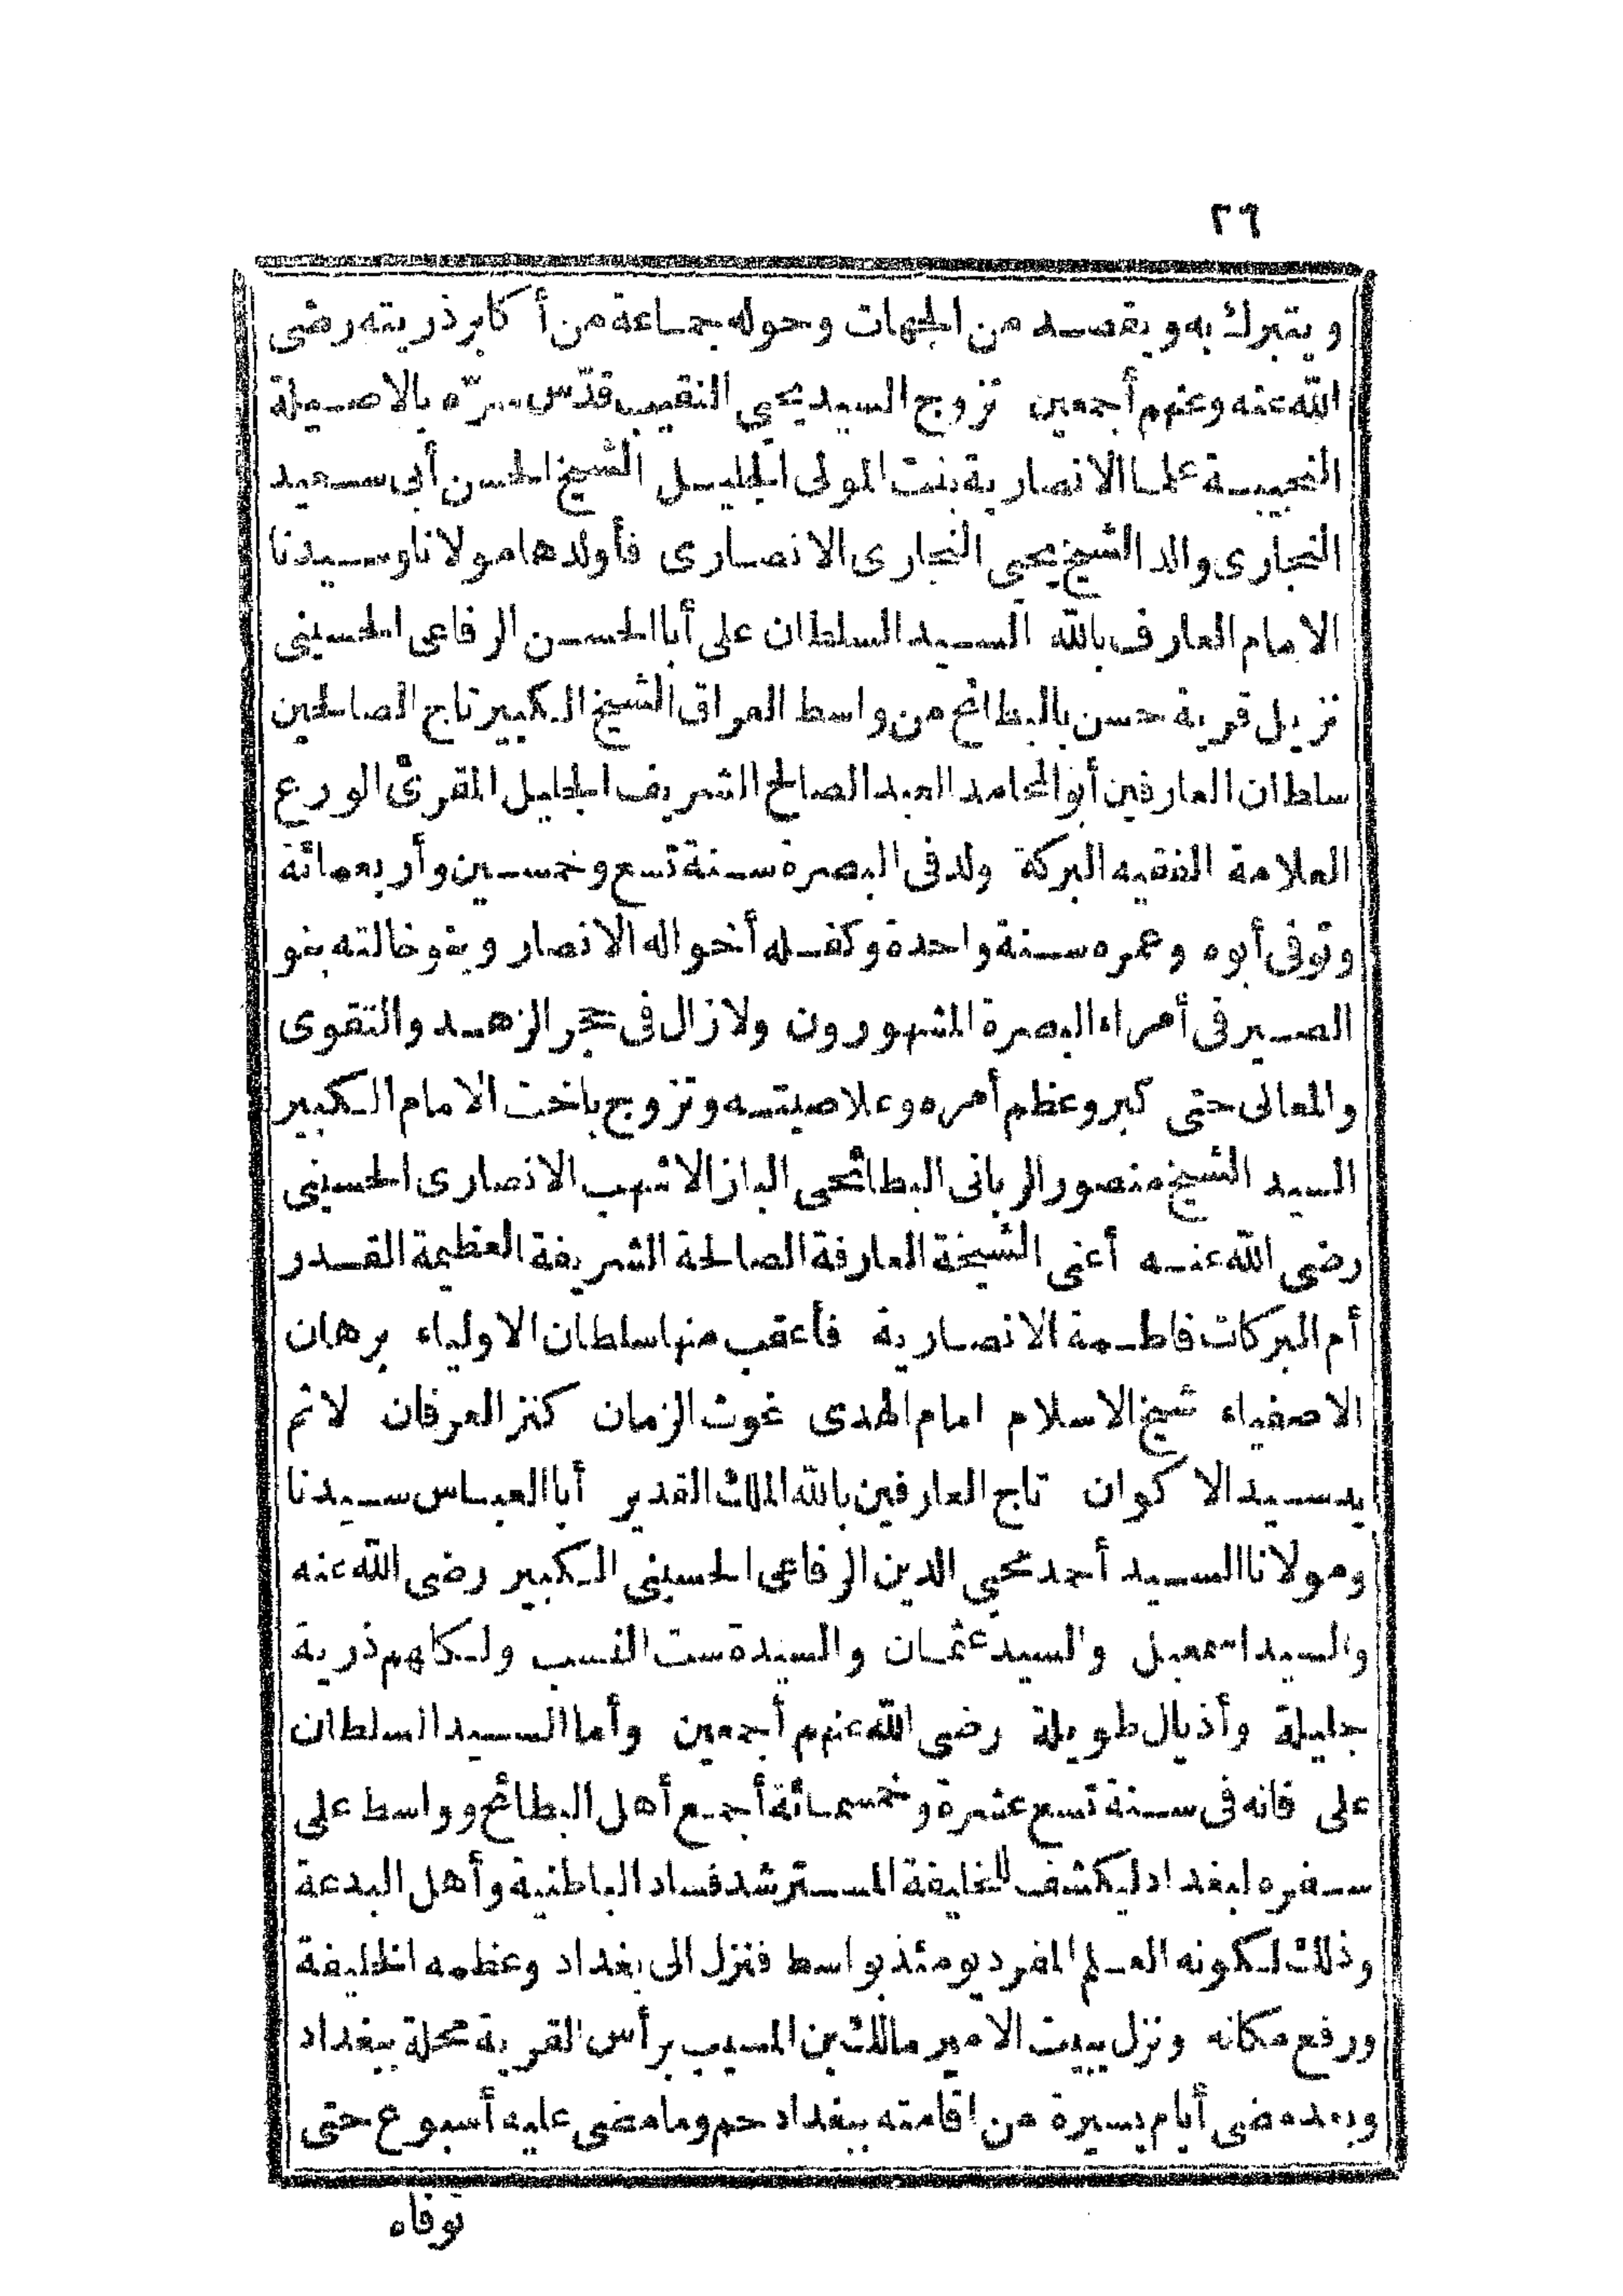 ٢٦
ويتبرك به ويقصد من الجهات وحوله جماعة من أكابر ذريته رضى
الله عنه وعنهم أجمعين تزوج السيد يحيي النقيب قدّس سرّه بالاصيلة
النجيبة علما الانصارية بنت المولى الجليل الشيخ الحسن أبى سعيد
النجارى والد الشيخ يحيي النجارى الانصارى فأولدها مولانا وسيدنا
الامام العارف بالله السيد السلطان على أبا الحسن الرفاعى الحسينى
نزيل قرية حسن بالبطائح من واسط العراق الشيخ الكبير تاج الصالحين
سلطان العارفين أبو المحامد العبد الصالح الشريف الجليل المقرئ الورع
العلامة الفقيه البركة ولد فى البصرة سنة تسع وخمسين وأربعمائة
وتوفى أبوه وعمره سنة واحدة وكفله أخواله الانصار وبنو خالته بنو
الصيرفى أمراء البصرة المشهورون ولازال فى حجر الزهد والتقوى
والمعالى حتى كبر وعظم أمره وعلا صيته وتزوج باخت الامام الكبير
السيد الشيخ منصور الربانى البطائحى الباز الاشهب الانصارى الحسينى
رضى الله عنه أعنى الشيخة العارفة الصالحة الشريفة العظيمة القدر
أم البركات فاطمة الانصارية فأعقب منها سلطان الاولياء برهان
الاصفياء شيخ الاسلام امام الهدى غوث الزمان كنز العرفان لاثم
يد سيد الاكوان تاج العارفين بالله الملك القدير أبا العباس سيدنا
ومولانا السيد أحمد محيي الدين الرفاعى الحسينى الكبير رضى الله عنه
والسيد اسمعيل والسيد عثمان والسيدة ست النسب ولكلهم ذرية
جليلة وأذيال طويلة رضى الله عنهم أجمعين وأما السيد السلطان
على فانه فى سنة تسع عشرة وخمسمائة أجمع أهل البطائح وواسط على
سفره لبغداد ليكشف للخليفة المسترشد فساد الباطنية وأهل البدعة
وذلك لكونه العلم المفرد يومئذ بواسط فنزل الى بغداد وعظمه الخليفة
ورفع مكانه ونزل ببيت الامير مالك بن المسيب برأس القرية محلة ببغداد
وبعد مضى أيام يسيرة من اقامته ببغداد حم وما مضى عليه أسبوع حتى
توفاه